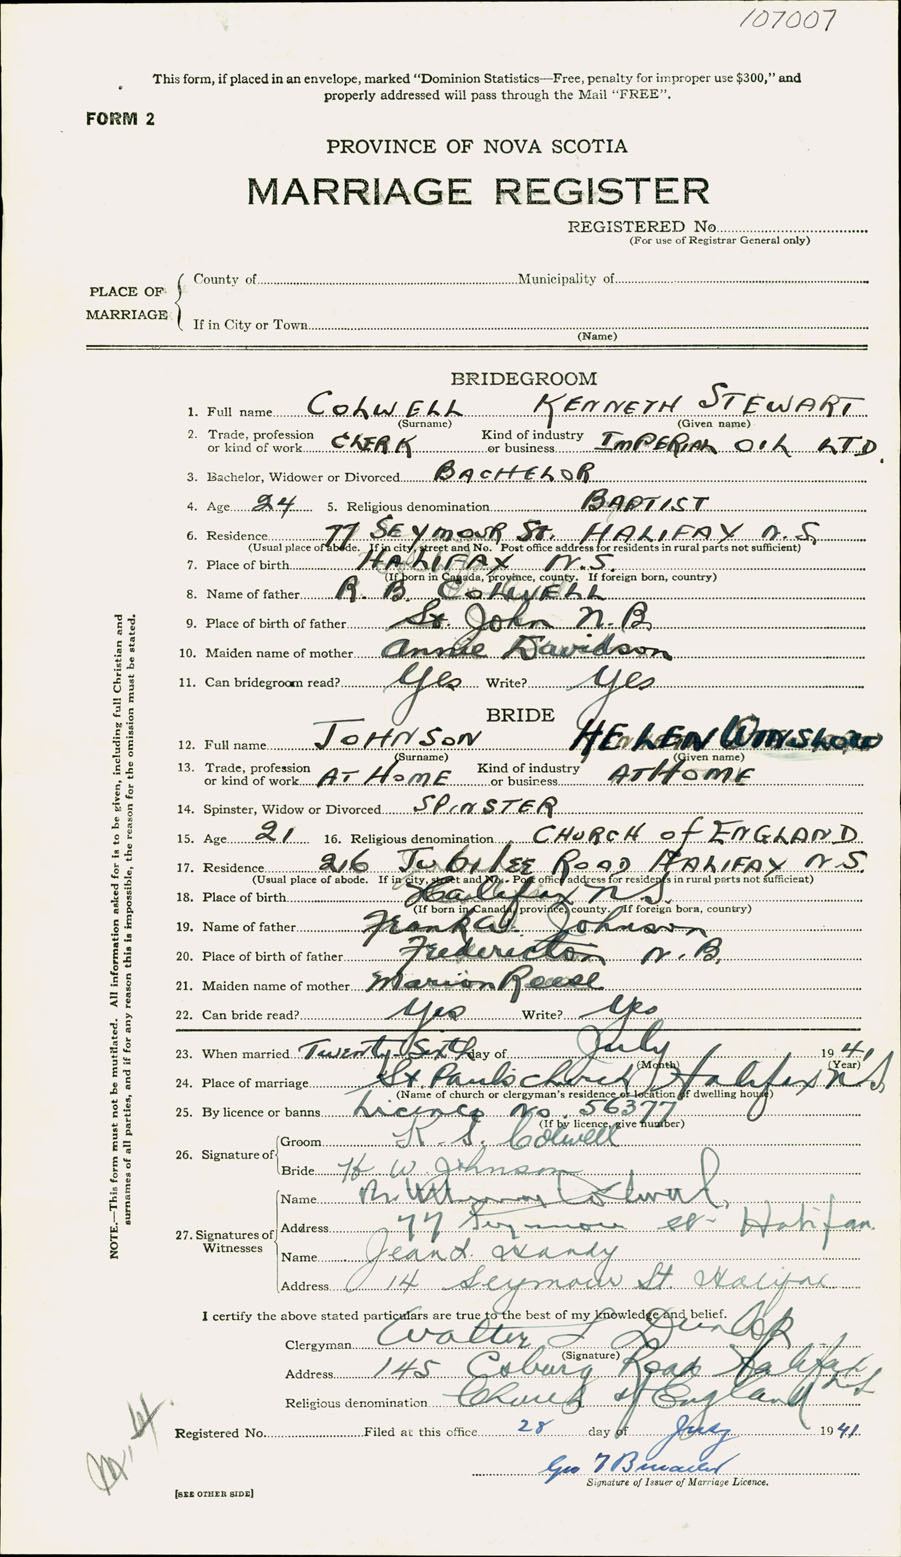 107007
This form, if placed in an envelope, marked "Dominion Statistics—Free, penalty for improper use $300," and
properly addressed will pass through the Mail "FREE".
FORM 2
PROVINCE OF NOVA SCOTIA
MARRIAGE REGISTER
REGISTERED No.
(For use of Registrar General only)
PLACE OF MARRIAGE
County of Municipality of
If in City or Town
(Name)
BRIDEGROOM
1. Full name COLWELL KENNETH STEWART
(Surname) (Given name)
2. Trade, profession or kind of work CLERK Kind of industry or business IMPERIAL OIL LTD.
3. Bachelor, Widower or Divorced BACHELOR
4. Age 24 5. Religious denomination BAPTIST
6. Residence 77 SEYMOUR St. HALIFAX N.S.
(Usual place of abode. If in city, street and No. Post office address for residents in rural parts not sufficient)
7. Place of birth HALIFAX N.S.
(If born in Canada, province, county. If foreign born, country)
8. Name of father R. B. COLWELL
9. Place of birth of father St. John N.B.
10. Maiden name of mother Annie Davidson
11. Can bridegroom read? Yes Write? Yes
BRIDE
12. Full name JOHNSON HELEN
(Surname) (Given name)
13. Trade, profession or kind of work AT HOME Kind of industry or business AT HOME
14. Spinster, Widow or Divorced SPINSTER
15. Age 21 16. Religious denomination CHURCH of ENGLAND
17. Residence 216 JUBILEE ROAD HALIFAX N.S.
(Usual place of abode. If in city, street and No. Post office address for residents in rural parts not sufficient)
18. Place of birth Halifax N.S.
(If born in Canada, province, county. If foreign born, country)
19. Name of father Frank W. Johnson
20. Place of birth of father Fredericton N.B.
21. Maiden name of mother Marion Reese
22. Can bride read? Yes Write? Yes
23. When married Twenty Sixth day of July 1941
(Month) (Year)
24. Place of marriage St Pauls church Halifax N S
(Name of church or clergyman's residence or location of dwelling house)
25. By licence or banns Licence No. 56377
(If by licence, give number)
26. Signature of
Groom K. S. Colwell
Bride H W Johnson
27. Signatures of Witnesses
Name
Address 77 Seymour St Halifax
Name Jean L. Handy
Address 14 Seymour St Halifax
I certify the above stated particulars are true to the best of my knowledge and belief.
Clergyman Walter L Dunlop
(Signature)
Address 145 Coburg Road Halifax N S
Religious denomination Church of England
Registered No. Filed at this office 28 day of July 1941
Signature of Issuer of Marriage Licence.
[SEE OTHER SIDE]
NOTE.—This form must not be mutilated. All information asked for is to be given, including full Christian and
surnames of all parties, and if for any reason this is impossible, the reason for the omission must be stated.